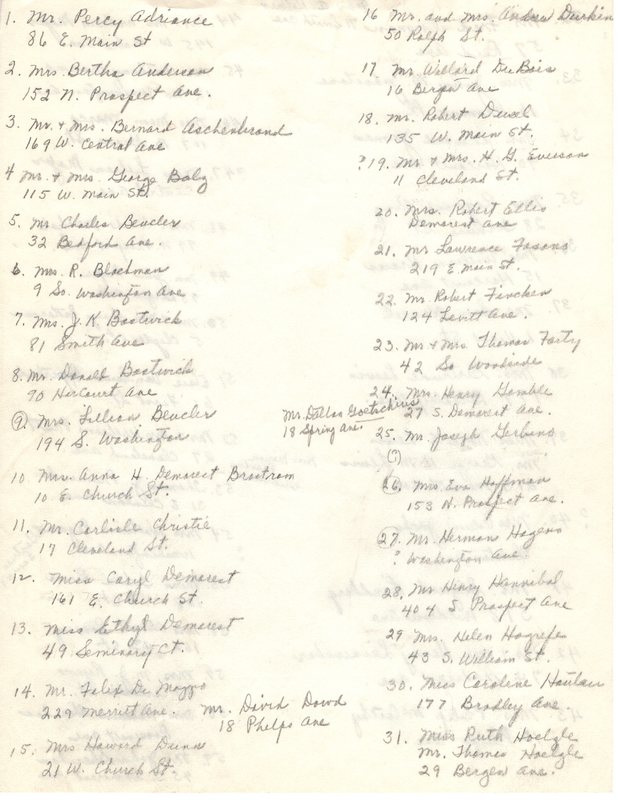 1. Mr. Percy Adriance
86 E. Main St
2. Mrs. Bertha Anderson
152 N. Prospect Ave.
3. Mr. + Mrs. Bernard Aschenbrand
169 W. Central Ave
4 Mr. + Mrs. George Baly
115 W. Main St.
5. Mr Charles Beucler
32 Bedford Ave.
6. Mrs. R. Blackman
9 So. Washington Ave.
7. Mrs. J. K. Bostwick
81 Smith Ave
8. Mr. Donald Bostwick
70 Harcourt Ave
9. Mrs. Lillian Beucler
194 S. Washington
10. Mrs. Anna H. Demarest Brostrom
10 E. Church St.
11. Mr. Carlisle Christie
17 Cleveland St.
12. Miss Caryl Demarest
161 E. Church St.
13. Miss Ethyl Demarest
49 Seminary Ct.
14. Mr. Felix Di Mazzo
229 Merritt Ave.
Mr. David Dowd
18 Phelps Ave
15. Mrs Howard Dunn
21 W. Church St.
16 Mr. and Mrs. Andrew Durkin
50 Ralph St.
17. Mr. Willard DuBois
16 Bergen Ave
18. Mr. Robert Duxel
135 W. Main St.
? 19. Mr + Mrs. H. G. Everson
11 Cleveland St.
20. Mrs. Robert Ellis
Demarest Ave
21. Mr Lawrence Fasano
219 E Main St.
22. Mr Robert Fincken
124 Levitt Ave.
23. Mr + Mrs. Thomas Forty
42 So Woodside
24. Mrs. Henry Gamble
27 S. Demarest Ave.
Mr. Dallas Goetschius
18 Spring Ave.
25. Mr. Joseph Gerbino
(?)
26. Mrs Eva Hoffman
153 N. Prospect Ave.
27. Mr. Hermans Hagens
? Washington Ave.
28. Mr Henry Hannibal
404 S. Prospect Ave
29 Mrs. Helen Hagrefe
43 S. William St.
30. Miss Caroline Haulau
177 Bradley Ave.
31. Miss Ruth Hoelzle
Mr. Thomas Hoelzle
29 Bergen Ave.